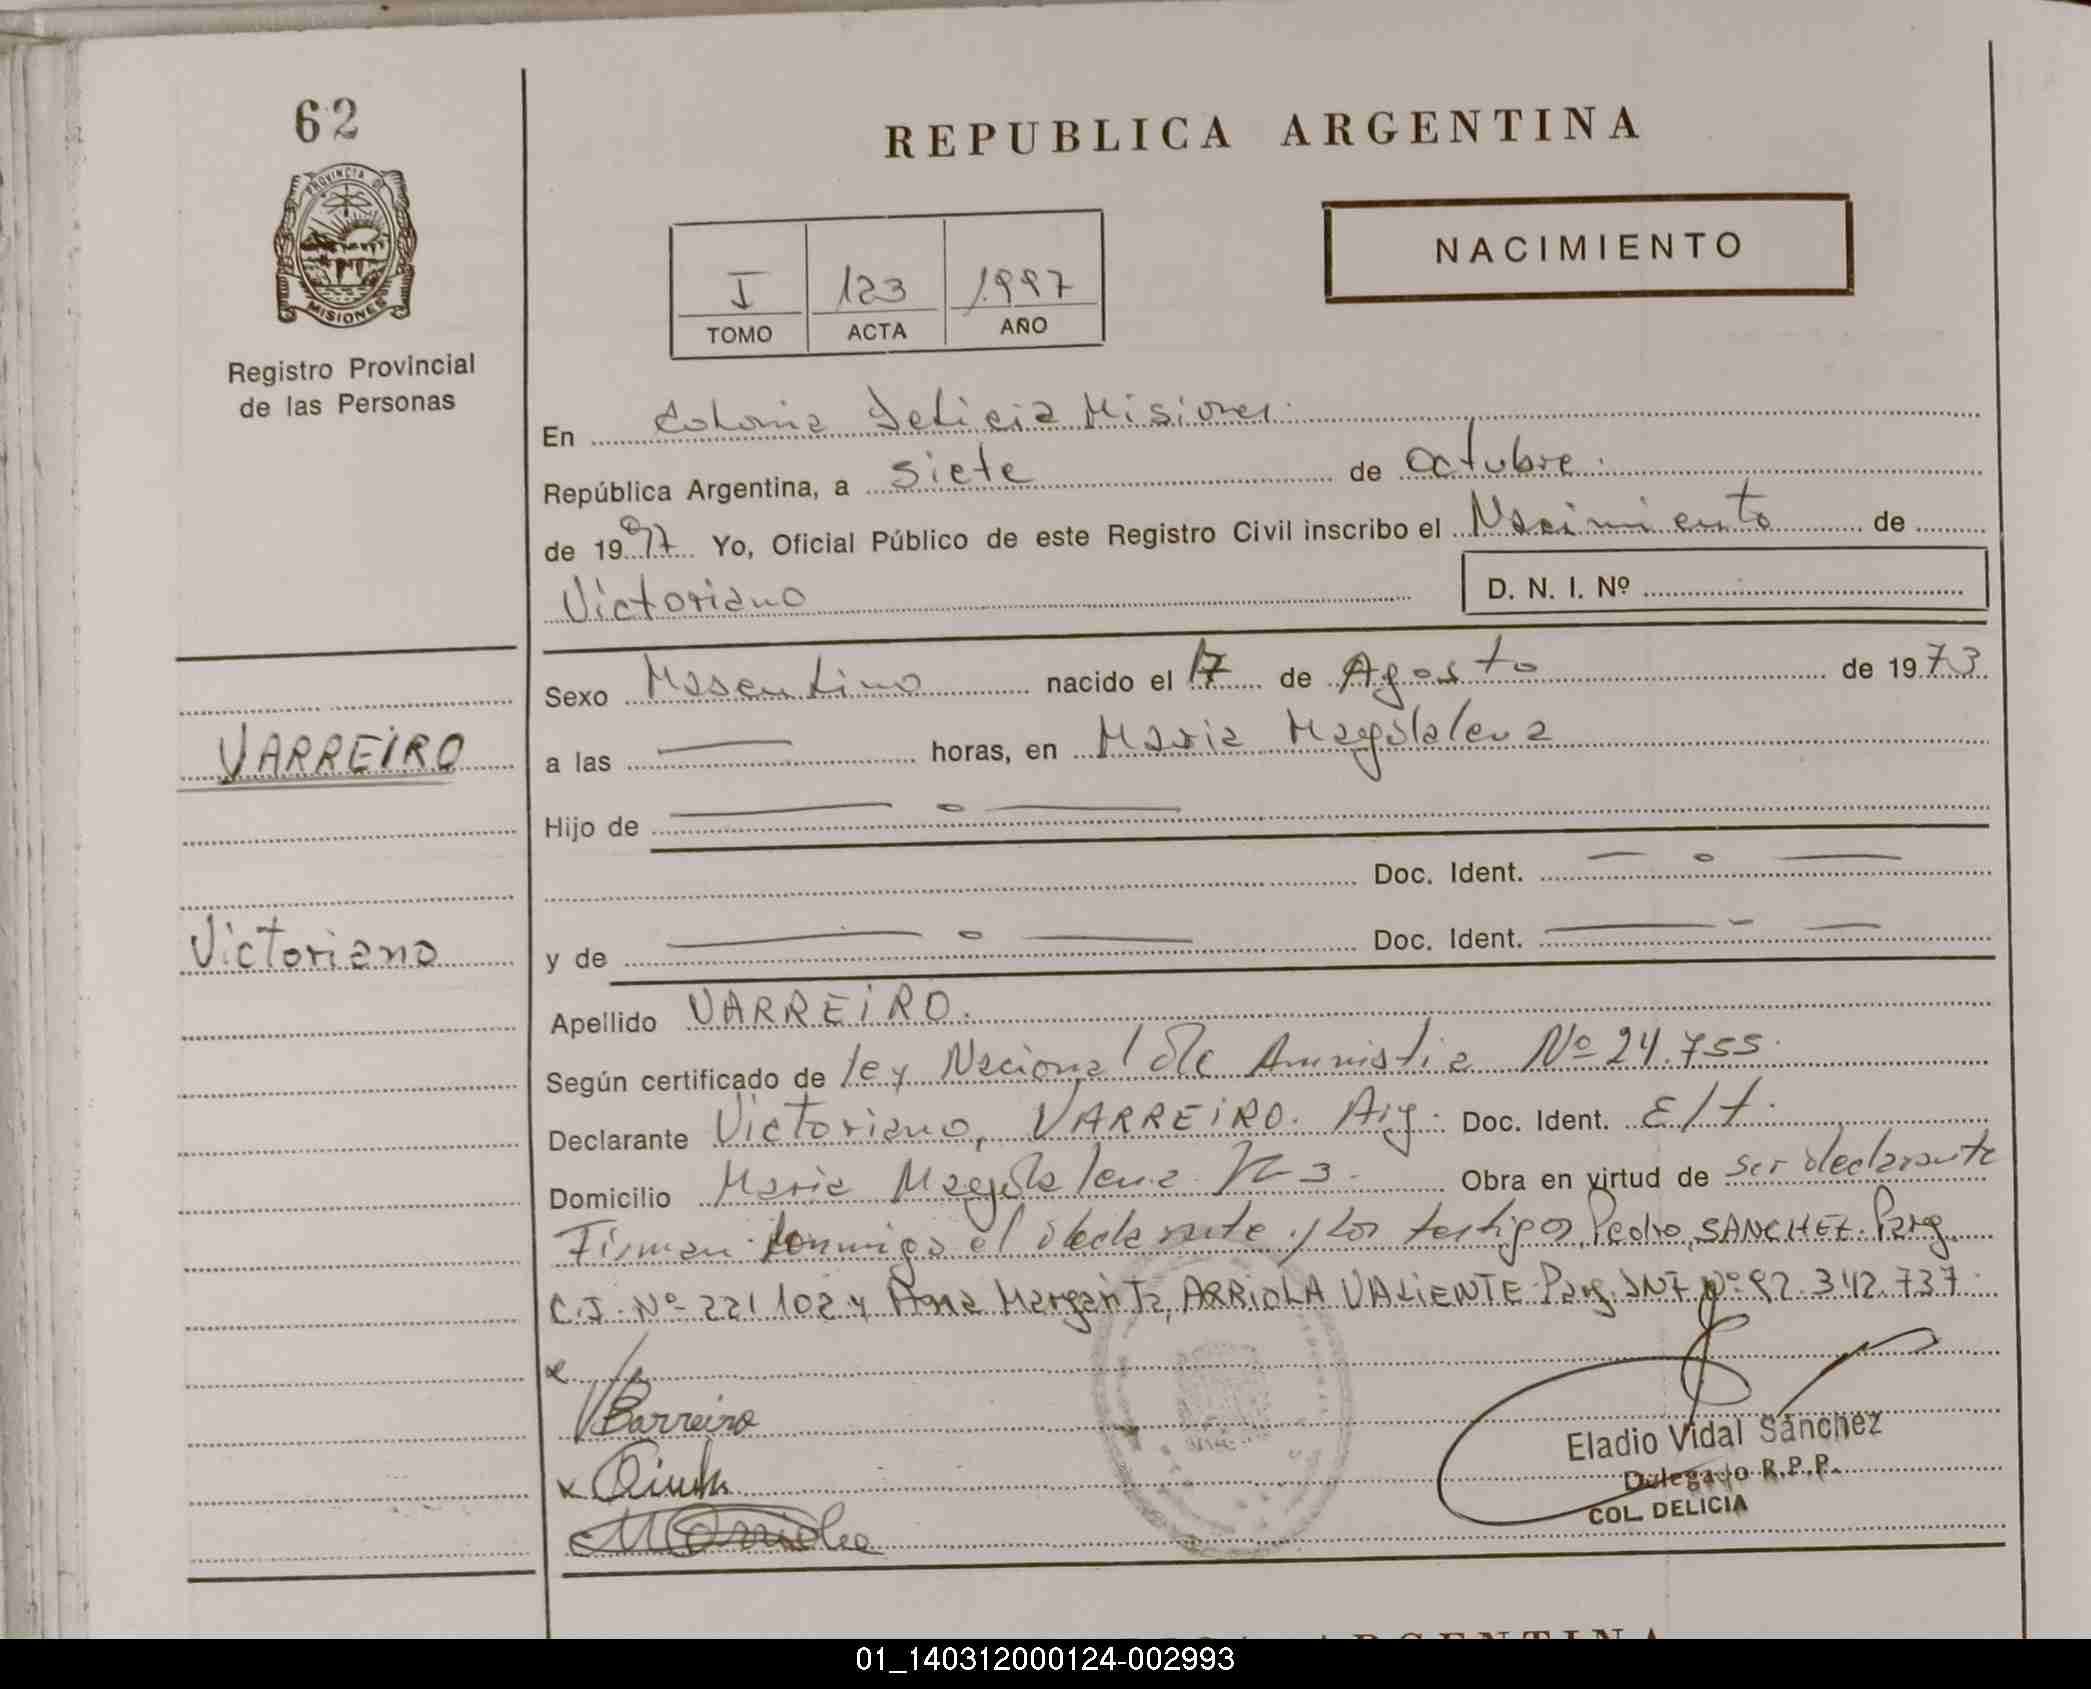 62
REPUBLICA ARGENTINA
PROVINCIA DE
MISIONES
NACIMIENTO
I 123 1997
TOMO ACTA AÑO
Registro Provincial
de las Personas
En Colonia Delicia Misiones.
República Argentina, a siete de Octubre.
de 1997 Yo, Oficial Público de este Registro Civil inscribo el Nacimiento de
Victoriano D. N. I. Nº
Sexo Masculino nacido el 17 de Agosto de 1973
VARREIRO
a las — horas, en Maria Magdalena
Hijo de
Doc. Ident.
Victoriano
y de Doc. Ident.
Apellido VARREIRO.
Según certificado de ley Nacional de Amnistia Nº 24.755.
Declarante Victoriano, VARREIRO. Arg. Doc. Ident. E/t.
Domicilio Maria Magdalena Obra en virtud de ser declarante
Firman conmigo el declarante y los testigos Pedro, SANCHEZ. Parg.
C.I. Nº 221102 y Ana Margarita, ARRIOLA VALIENTE Parg. DNI Nº 92.342.737.
VBarreiro
Eladio Vidal Sánchez
Delegado R.P.P.
COL. DELICIA
ARGENTINA
01_140312000124-002993